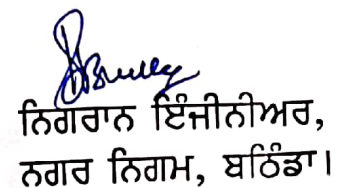 ਨਿਗਰਾਨ ਇੰਜੀਨੀਅਰ,
ਨਗਰ ਨਿਗਮ, ਬਠਿੰਡਾ।